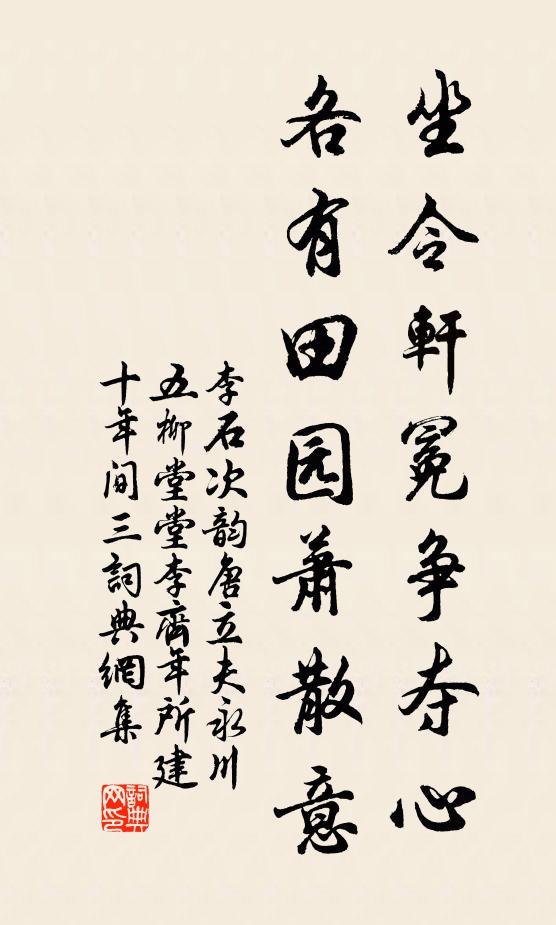 坐令軒冕争夺心
各有田园萧散意
李石次韵唐立夫永川
五柳堂堂李齊年所建
十年间三詞典網集
詞典网印